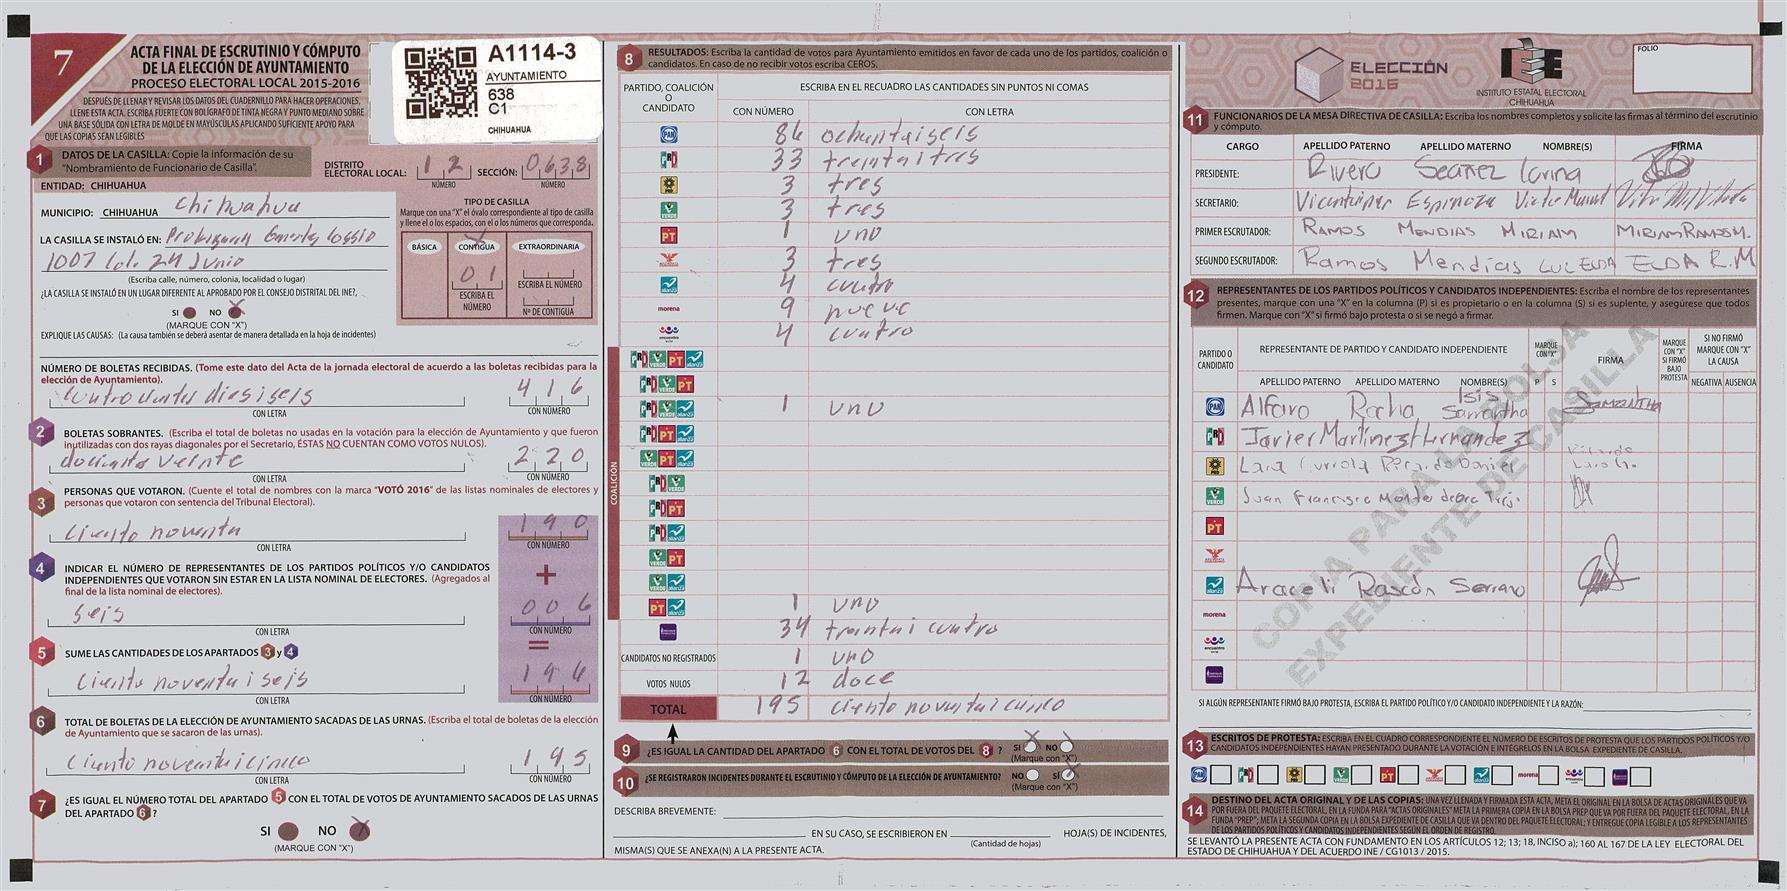 7
ACTA FINAL DE ESCRUTINIO Y CÓMPUTO
DE LA ELECCIÓN DE AYUNTAMIENTO
PROCESO ELECTORAL LOCAL 2015-2016
DESPUÉS DE LLENAR Y REVISAR LOS DATOS DEL CUADERNILLO PARA HACER OPERACIONES,
LLENE ESTA ACTA. ESCRIBA FUERTE CON BOLÍGRAFO DE TINTA NEGRA Y PUNTO MEDIANO SOBRE
UNA BASE SÓLIDA CON LETRA DE MOLDE EN MAYÚSCULAS APLICANDO SUFICIENTE APOYO PARA
QUE LAS COPIAS SEAN LEGIBLES
A1114-3
AYUNTAMIENTO
638
C1
CHIHUAHUA
1 DATOS DE LA CASILLA: Copie la información de su
"Nombramiento de Funcionario de Casilla".
DISTRITO ELECTORAL LOCAL: 12 SECCIÓN: 0638
NÚMERO NÚMERO
ENTIDAD: CHIHUAHUA
MUNICIPIO: CHIHUAHUA Chihuahua
LA CASILLA SE INSTALÓ EN:
1007 Col. 24 Junio
(Escriba calle, número, colonia, localidad o lugar)
TIPO DE CASILLA
Marque con una "X" el óvalo correspondiente al tipo de casilla
y llene el o los espacios, con el o los números que corresponda.
BÁSICA CONTIGUA EXTRAORDINARIA
01
ESCRIBA EL NÚMERO ESCRIBA EL NÚMERO
Nº DE CONTIGUA
¿LA CASILLA SE INSTALÓ EN UN LUGAR DIFERENTE AL APROBADO POR EL CONSEJO DISTRITAL DEL INE?,
SI NO X
(MARQUE CON "X")
EXPLIQUE LAS CAUSAS: (La causa también se deberá asentar de manera detallada en la hoja de incidentes)
NÚMERO DE BOLETAS RECIBIDAS. (Tome este dato del Acta de la jornada electoral de acuerdo a las boletas recibidas para la
elección de Ayuntamiento).
diesiseis 416
CON LETRA CON NÚMERO
2 BOLETAS SOBRANTES. (Escriba el total de boletas no usadas en la votación para la elección de Ayuntamiento y que fueron
inutilizadas con dos rayas diagonales por el Secretario, ÉSTAS NO CUENTAN COMO VOTOS NULOS).
veinte 220
CON LETRA CON NÚMERO
3 PERSONAS QUE VOTARON. (Cuente el total de nombres con la marca "VOTÓ 2016" de las listas nominales de electores y
personas que votaron con sentencia del Tribunal Electoral).
ciento noventa 190
CON LETRA CON NÚMERO
4 INDICAR EL NÚMERO DE REPRESENTANTES DE LOS PARTIDOS POLÍTICOS Y/O CANDIDATOS
INDEPENDIENTES QUE VOTARON SIN ESTAR EN LA LISTA NOMINAL DE ELECTORES. (Agregados al
final de la lista nominal de electores).
+
seis 006
CON LETRA CON NÚMERO
=
5 SUME LAS CANTIDADES DE LOS APARTADOS 3 y 4
ciento noventaiseis 196
CON LETRA CON NÚMERO
6 TOTAL DE BOLETAS DE LA ELECCIÓN DE AYUNTAMIENTO SACADAS DE LAS URNAS. (Escriba el total de boletas de la elección
de Ayuntamiento que se sacaron de las urnas).
ciento noventaicinco 195
CON LETRA CON NÚMERO
7 ¿ES IGUAL EL NÚMERO TOTAL DEL APARTADO 5 CON EL TOTAL DE VOTOS DE AYUNTAMIENTO SACADOS DE LAS URNAS
DEL APARTADO 6?
SI NO X
(MARQUE CON "X")
8 RESULTADOS: Escriba la cantidad de votos para Ayuntamiento emitidos en favor de cada uno de los partidos, coalición o
candidatos. En caso de no recibir votos escriba CEROS.
PARTIDO, COALICIÓN O CANDIDATO
ESCRIBA EN EL RECUADRO LAS CANTIDADES SIN PUNTOS NI COMAS
CON NÚMERO CON LETRA
PAN 86 ochentaiseis
PRD 33 treintaitres
PRD 3 tres
VERDE 3 tres
PT 1 uno
3 tres
alianza 4 cuatro
morena 9 nueve
encuentro 4 cuatro
COALICIÓN
PRI VERDE PT alianza
PRI VERDE PT
PRI VERDE alianza 1 uno
PRI PT alianza
VERDE PT alianza
PRI VERDE
PRI PT
PRI alianza
VERDE PT
VERDE alianza
PT alianza 1 uno
34 treintai cuatro
CANDIDATOS NO REGISTRADOS 1 uno
VOTOS NULOS 12 doce
TOTAL 195 ciento noventaicinco
9 ¿ES IGUAL LA CANTIDAD DEL APARTADO 6 CON EL TOTAL DE VOTOS DEL 8? SI X NO
(Marque con "X")
10 ¿SE REGISTRARON INCIDENTES DURANTE EL ESCRUTINIO Y CÓMPUTO DE LA ELECCIÓN DE AYUNTAMIENTO? NO SÍ X
(Marque con "X")
DESCRIBA BREVEMENTE:
EN SU CASO, SE ESCRIBIERON EN HOJA(S) DE INCIDENTES,
(Cantidad de hojas)
MISMA(S) QUE SE ANEXA(N) A LA PRESENTE ACTA.
ELECCIÓN 2016
IEE
INSTITUTO ESTATAL ELECTORAL
CHIHUAHUA
FOLIO
11 FUNCIONARIOS DE LA MESA DIRECTIVA DE CASILLA: Escriba los nombres completos y solicite las firmas al término del escrutinio
y cómputo.
CARGO APELLIDO PATERNO APELLIDO MATERNO NOMBRE(S) FIRMA
PRESIDENTE: Rivero Seañez
SECRETARIO: Espinoza
PRIMER ESCRUTADOR: RAMOS MENDIAS MIRIAM MIRIAM RAMOS M.
SEGUNDO ESCRUTADOR: Ramos Mendias LUZ ELDA ELDA R.M
12 REPRESENTANTES DE LOS PARTIDOS POLÍTICOS Y CANDIDATOS INDEPENDIENTES: Escriba el nombre de los representantes
presentes, marque con una "X" en la columna (P) si es propietario o en la columna (S) si es suplente, y asegúrese que todos
firmen. Marque con "X" si firmó bajo protesta o si se negó a firmar.
PARTIDO O CANDIDATO
REPRESENTANTE DE PARTIDO Y CANDIDATO INDEPENDIENTE
MARQUE CON "X"
FIRMA
MARQUE CON "X" SI FIRMÓ BAJO PROTESTA
SI NO FIRMÓ MARQUE CON "X" LA CAUSA
APELLIDO PATERNO APELLIDO MATERNO NOMBRE(S) P S NEGATIVA AUSENCIA
PAN Alfaro Rocha Isis Samantha SAMANTHA
PRI Javier Martinez Hernandez
PRD Lara Ricardo Daniel Ricardo Lara
VERDE Juan Francisco
PT
alianza Araceli Rascón Serrano
morena
encuentro
COPIA PARA LA BOLSA
EXPEDIENTE DE CASILLA
SI ALGÚN REPRESENTANTE FIRMÓ BAJO PROTESTA, ESCRIBA EL PARTIDO POLÍTICO Y/O CANDIDATO INDEPENDIENTE Y LA RAZÓN:
13 ESCRITOS DE PROTESTA: ESCRIBA EN EL CUADRO CORRESPONDIENTE EL NÚMERO DE ESCRITOS DE PROTESTA QUE LOS PARTIDOS POLÍTICOS Y/O
CANDIDATOS INDEPENDIENTES HAYAN PRESENTADO DURANTE LA VOTACIÓN E INTÉGRELOS EN LA BOLSA EXPEDIENTE DE CASILLA.
14 DESTINO DEL ACTA ORIGINAL Y DE LAS COPIAS: UNA VEZ LLENADA Y FIRMADA ESTA ACTA, META EL ORIGINAL EN LA BOLSA DE ACTAS ORIGINALES QUE VA
POR FUERA DEL PAQUETE ELECTORAL, EN LA FUNDA PARA "ACTAS ORIGINALES" META LA PRIMERA COPIA EN LA BOLSA PREP QUE VA POR FUERA DEL PAQUETE ELECTORAL, EN LA
FUNDA "PREP"; META LA SEGUNDA COPIA EN LA BOLSA EXPEDIENTE DE CASILLA QUE VA DENTRO DEL PAQUETE ELECTORAL; Y ENTREGUE COPIA LEGIBLE A LOS REPRESENTANTES
DE LOS PARTIDOS POLÍTICOS Y CANDIDATOS INDEPENDIENTES SEGÚN EL ORDEN DE REGISTRO.
SE LEVANTÓ LA PRESENTE ACTA CON FUNDAMENTO EN LOS ARTÍCULOS 12; 13; 18, INCISO a); 160 AL 167 DE LA LEY ELECTORAL DEL
ESTADO DE CHIHUAHUA Y DEL ACUERDO INE / CG1013 / 2015.